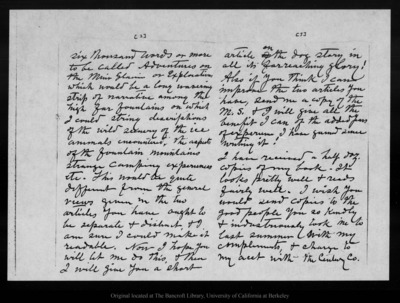 C 53
six thousand words or more
to be called Adventures on
the Muir Glacier or Exploration
which would be a long
strip of narrative among the
high far fountains on which
I could string descriptions
of the wild scenery of the ice
animals encountered, the aspects
of the fountain mountains
strange camping experiences
etc. This would be quite
different from the general
views given in the two
articles you have ought to
be separate & distinct, & I
am sure I could make it
readable. Now I hope you
will let me do this, & then
I will give you a short
C 53
article on the dog story in
all its far reaching glory!
Also if you think I can
improve the two articles you
have, send me a copy of the
M.S. & I will give all the
benefit I can of the added
experience I have gained since
writing it!
I have received a half doz.
copies of my book. It
looks pretty well & reads
fairly well. I wish you
would send copies to the
good people you so kindly
& industriously took me to
last summer with my
compliments, & charge to
my acct with the Century Co.
Original located at The Bancroft Library, University of California at Berkeley